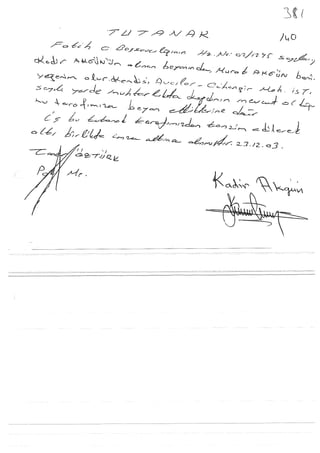 381
/40
TUTANAK
Fatih C Başsavcılığının Hz. No:
Kadir AKGÜN'ün alınan beyanından Murat AKGÜN benim
yeğenim olur. Kendisi Avcılar - Cihangir Mah.
sayılı yerde muhtarlıkta kaydının mevcut olduğu
nu tarafımıza beyan ettiklerine dair
İş bu tutanak tarafımızdan tanzim edilerek
altı birlikte imza altına alınmıştır. 23.12.03.
ÖZTÜRK
Kadir Akgün